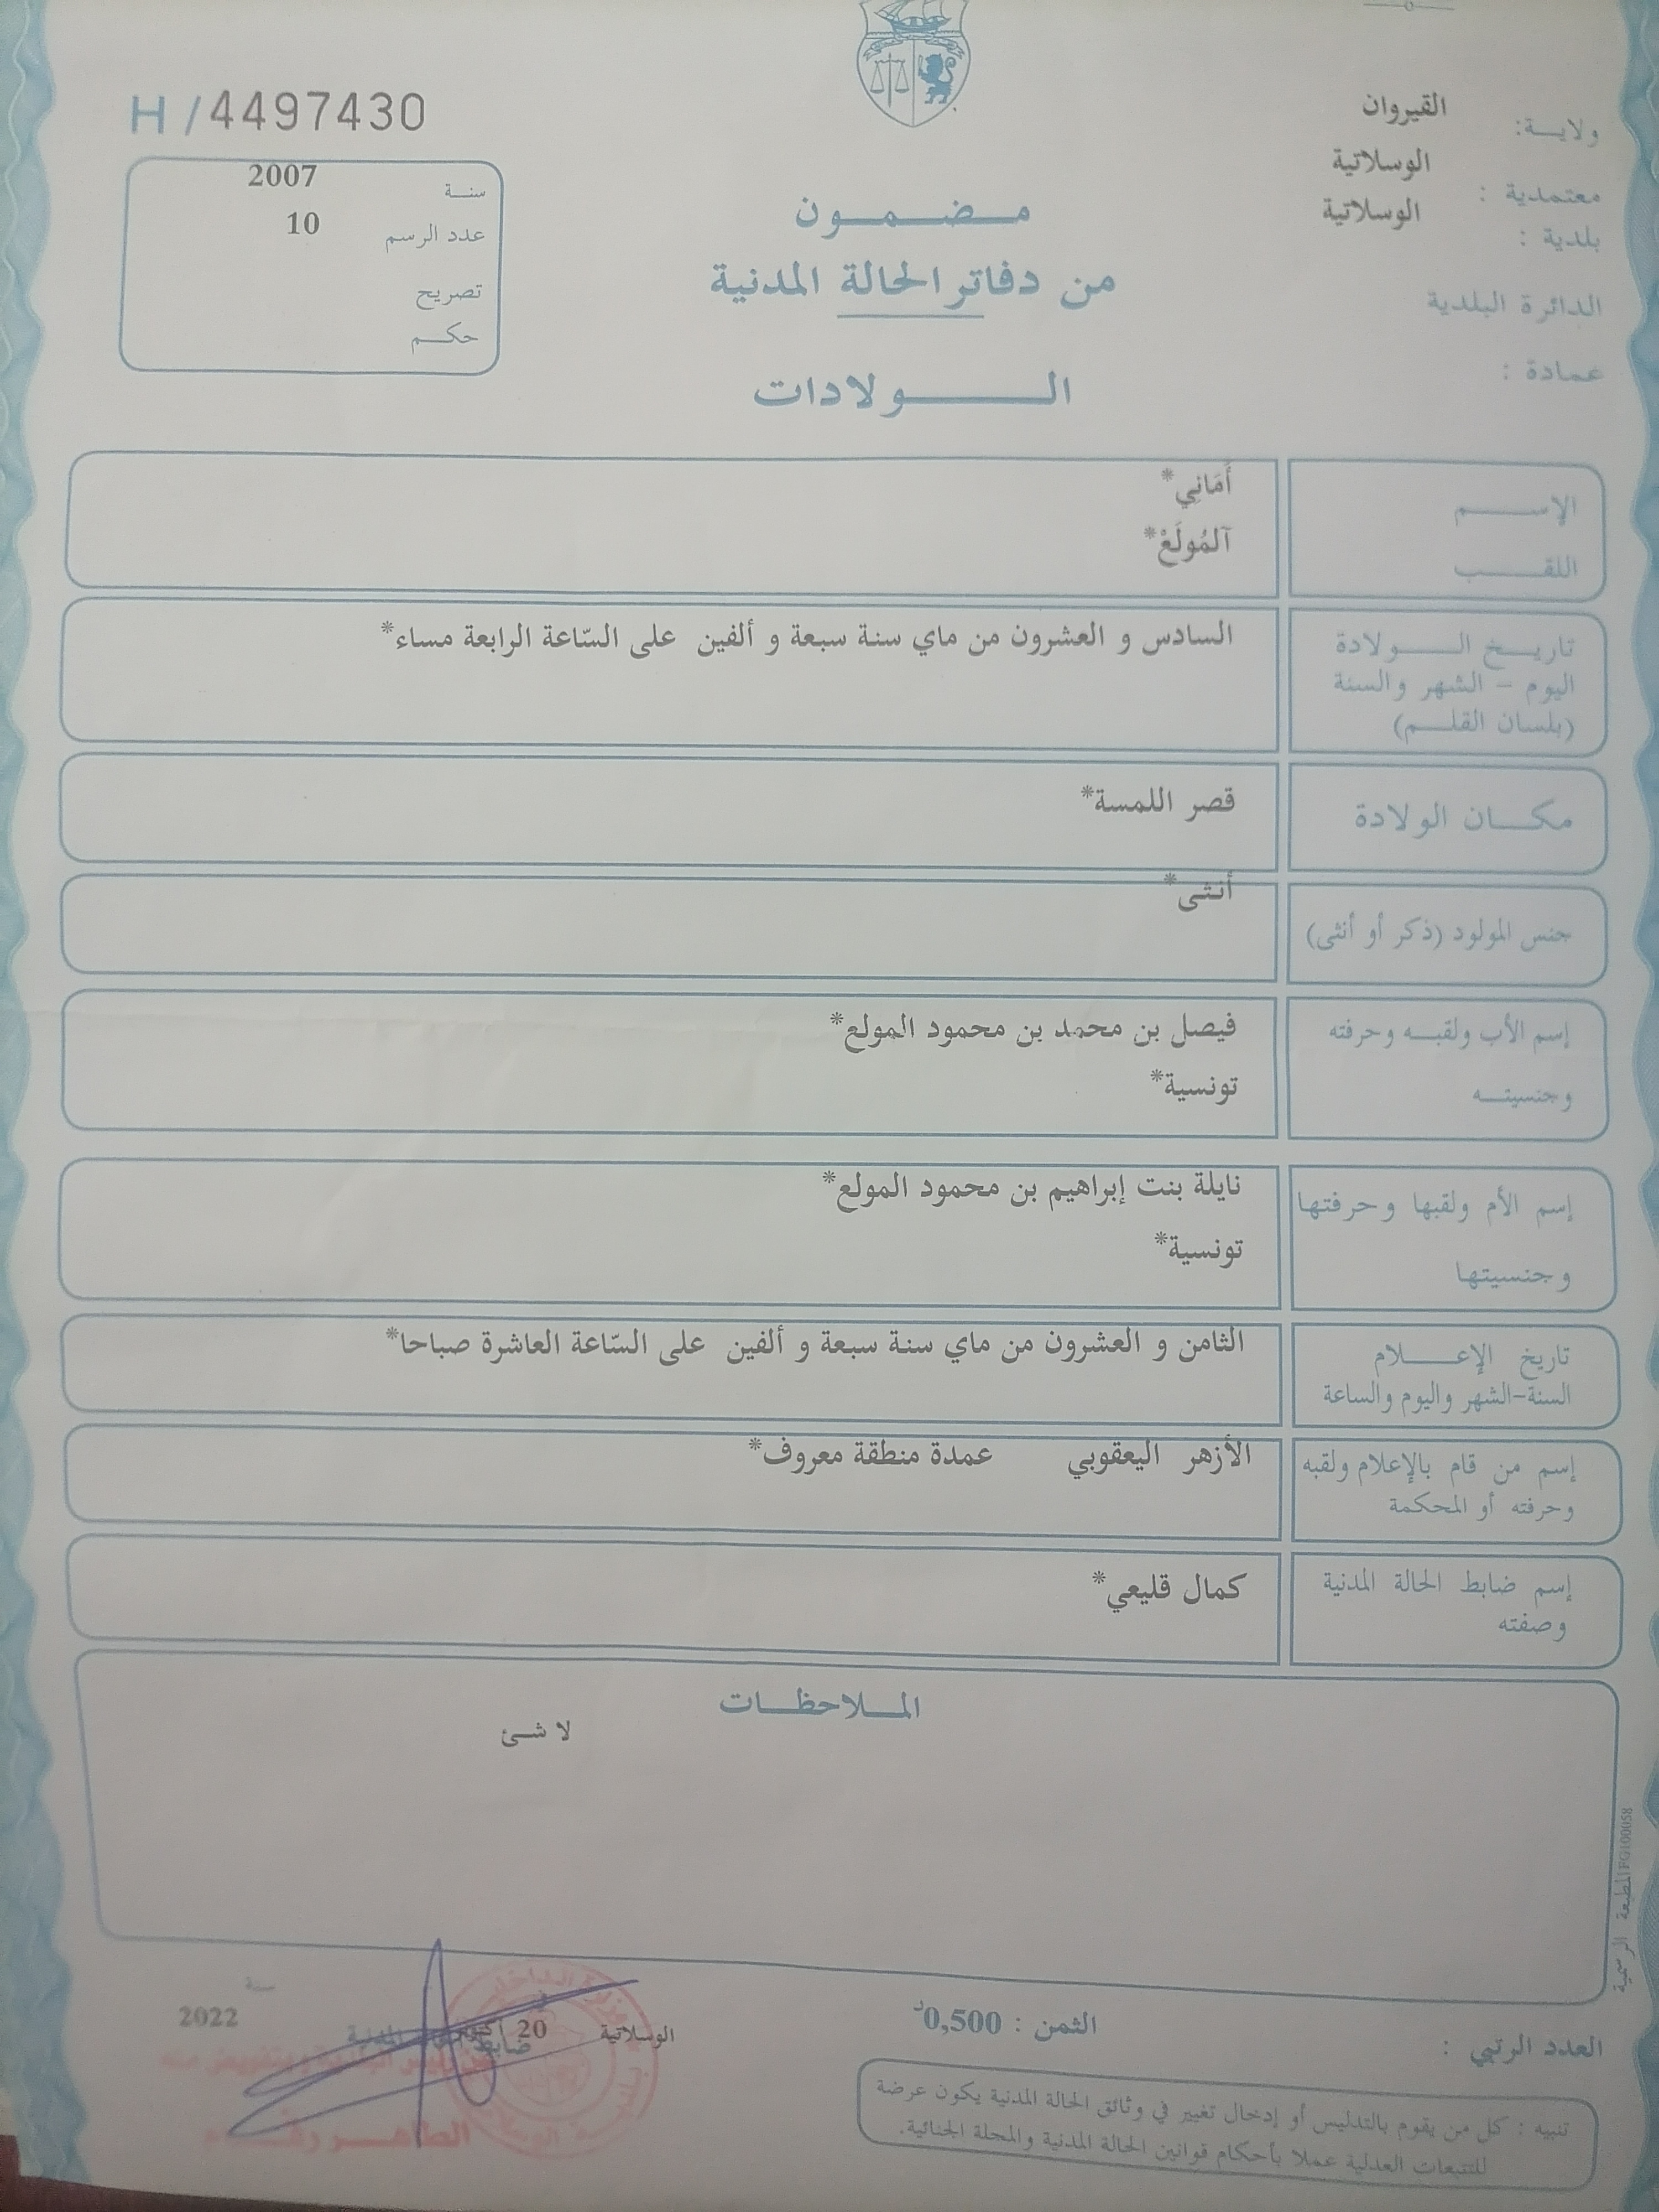 H / 4497430
ولايـة: القيروان
معتمدية : الوسلاتية
بلدية : الوسلاتية
الدائرة البلدية
عمادة :
سنة 2007
عدد الرسم 10
تصريح
حكم
مضمون
من دفاتر الحالة المدنية
الولادات
الإسم أَمَانِي*
اللقب آلمُولَعْ*
تاريخ الولادة
اليوم – الشهر والسنة
(بلسان القلم)
السادس و العشرون من ماي سنة سبعة و ألفين على السّاعة الرابعة مساء*
مكان الولادة قصر اللمسة*
جنس المولود (ذكر أو أنثى) أنثى*
إسم الأب ولقبه وحرفته فيصل بن محمد بن محمود المولع*
وجنسيته تونسية*
إسم الأم ولقبها وحرفتها نايلة بنت إبراهيم بن محمود المولع*
وجنسيتها تونسية*
تاريخ الإعلام
السنة-الشهر واليوم والساعة
الثامن و العشرون من ماي سنة سبعة و ألفين على السّاعة العاشرة صباحا*
إسم من قام بالإعلام ولقبه
وحرفته أو المحكمة
الأزهر اليعقوبي عمدة منطقة معروف*
إسم ضابط الحالة المدنية
وصفته
كمال قليعي*
الملاحظات
لا شئ
المطبعة الرسمية FG100058
العدد الرتبي :
الثمن : 0,500د
الوسلاتية في 20 أكتوبر سنة 2022
ضابط الحالة المدنية
تنبيه : كل من يقوم بالتدليس أو إدخال تغيير في وثائق الحالة المدنية يكون عرضة
للتتبعات العدلية عملا بأحكام قوانين الحالة المدنية والمجلة الجنائية.